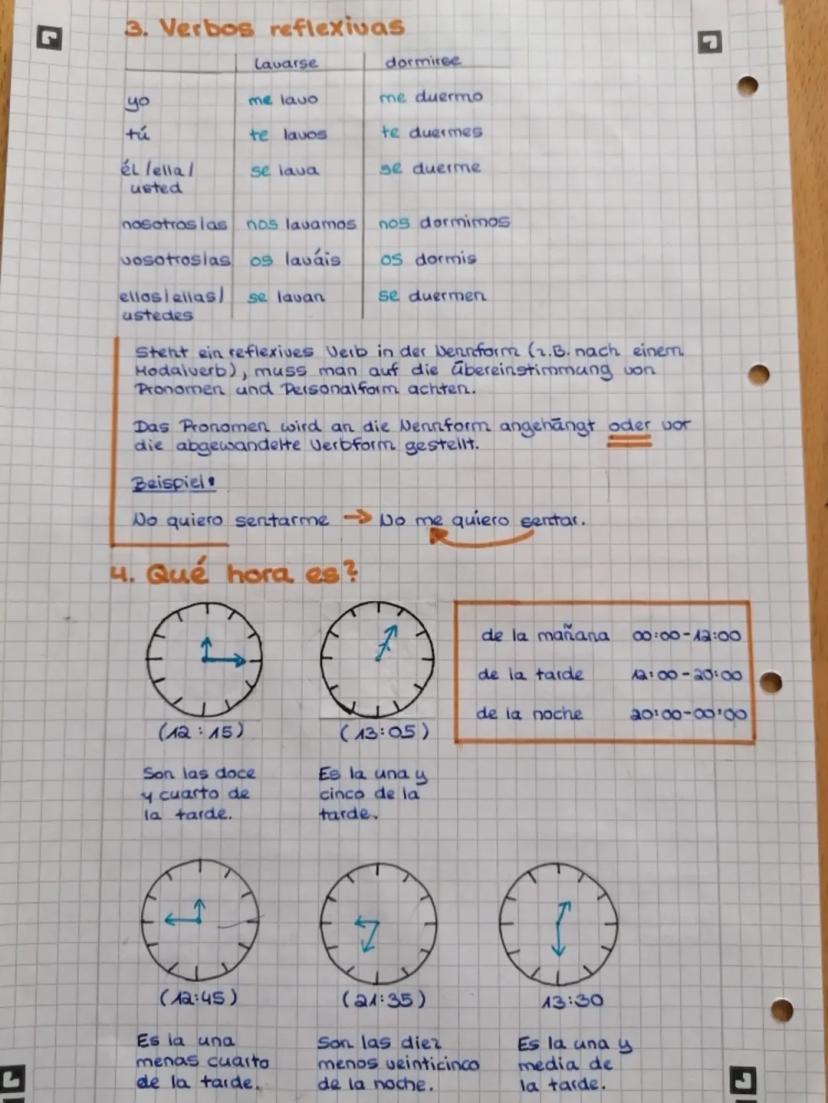 3. Verbos reflexivas
lavarse dormirse
yo me lavo me duermo
tú te lavos te duermes
él/ella/ se lava se duerme
usted
nosotros/as nos lavamos nos dormimos
vosotros/as os laváis os dormis
ellos/ellas/ se lavan se duermen
ustedes
Steht ein reflexives Verb in der Nennform (z.B. nach einem
Modalverb), muss man auf die Übereinstimmung von
Pronomen und Personalform achten.
Das Pronomen wird an die Nennform angehängt oder vor
die abgewandelte Verbform gestellt.
Beispiel:
No quiero sentarme → No me quiero sentar.
4. Qué hora es?
de la mañana 00:00-12:00
de la tarde 12:00-20:00
de la noche 20:00-00:00
(12:15) (13:05)
Son las doce
y cuarto de
la tarde.
Es la una y
cinco de la
tarde.
(12:45) (21:35) 13:30
Es la una
menas cuarto
de la tarde.
Son las diez
menos veinticinco
de la noche.
Es la una y
media de
la tarde.